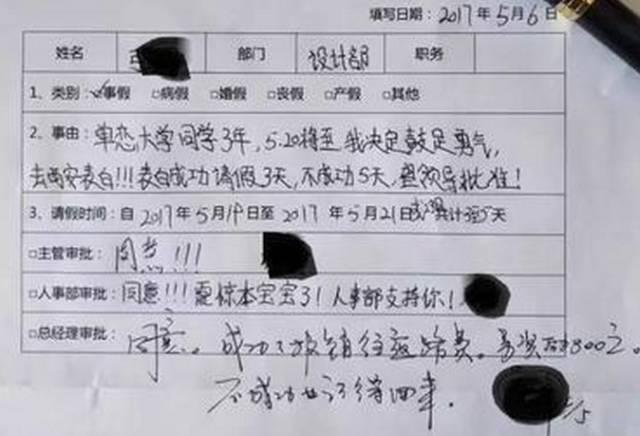 填写日期：2017年5月6日
姓名 部门 设计部 职务
1、类别：☑事假 □病假 □婚假 □丧假 □产假 □其他
2、事由：单恋大学同学3年，5.20将至我决定鼓足勇气，
去西安表白!!!表白成功请假3天，不成功5天，望领导批准！
3、请假时间：自2017年5月19日至2017年5月21日或 共计3至5天
□主管审批：同意!!!
□人事部审批：同意!!!震惊本宝宝了！人事部支持你！
□总经理审批：同意。成功了报销往返路费。 800元
不成功也记得回来．